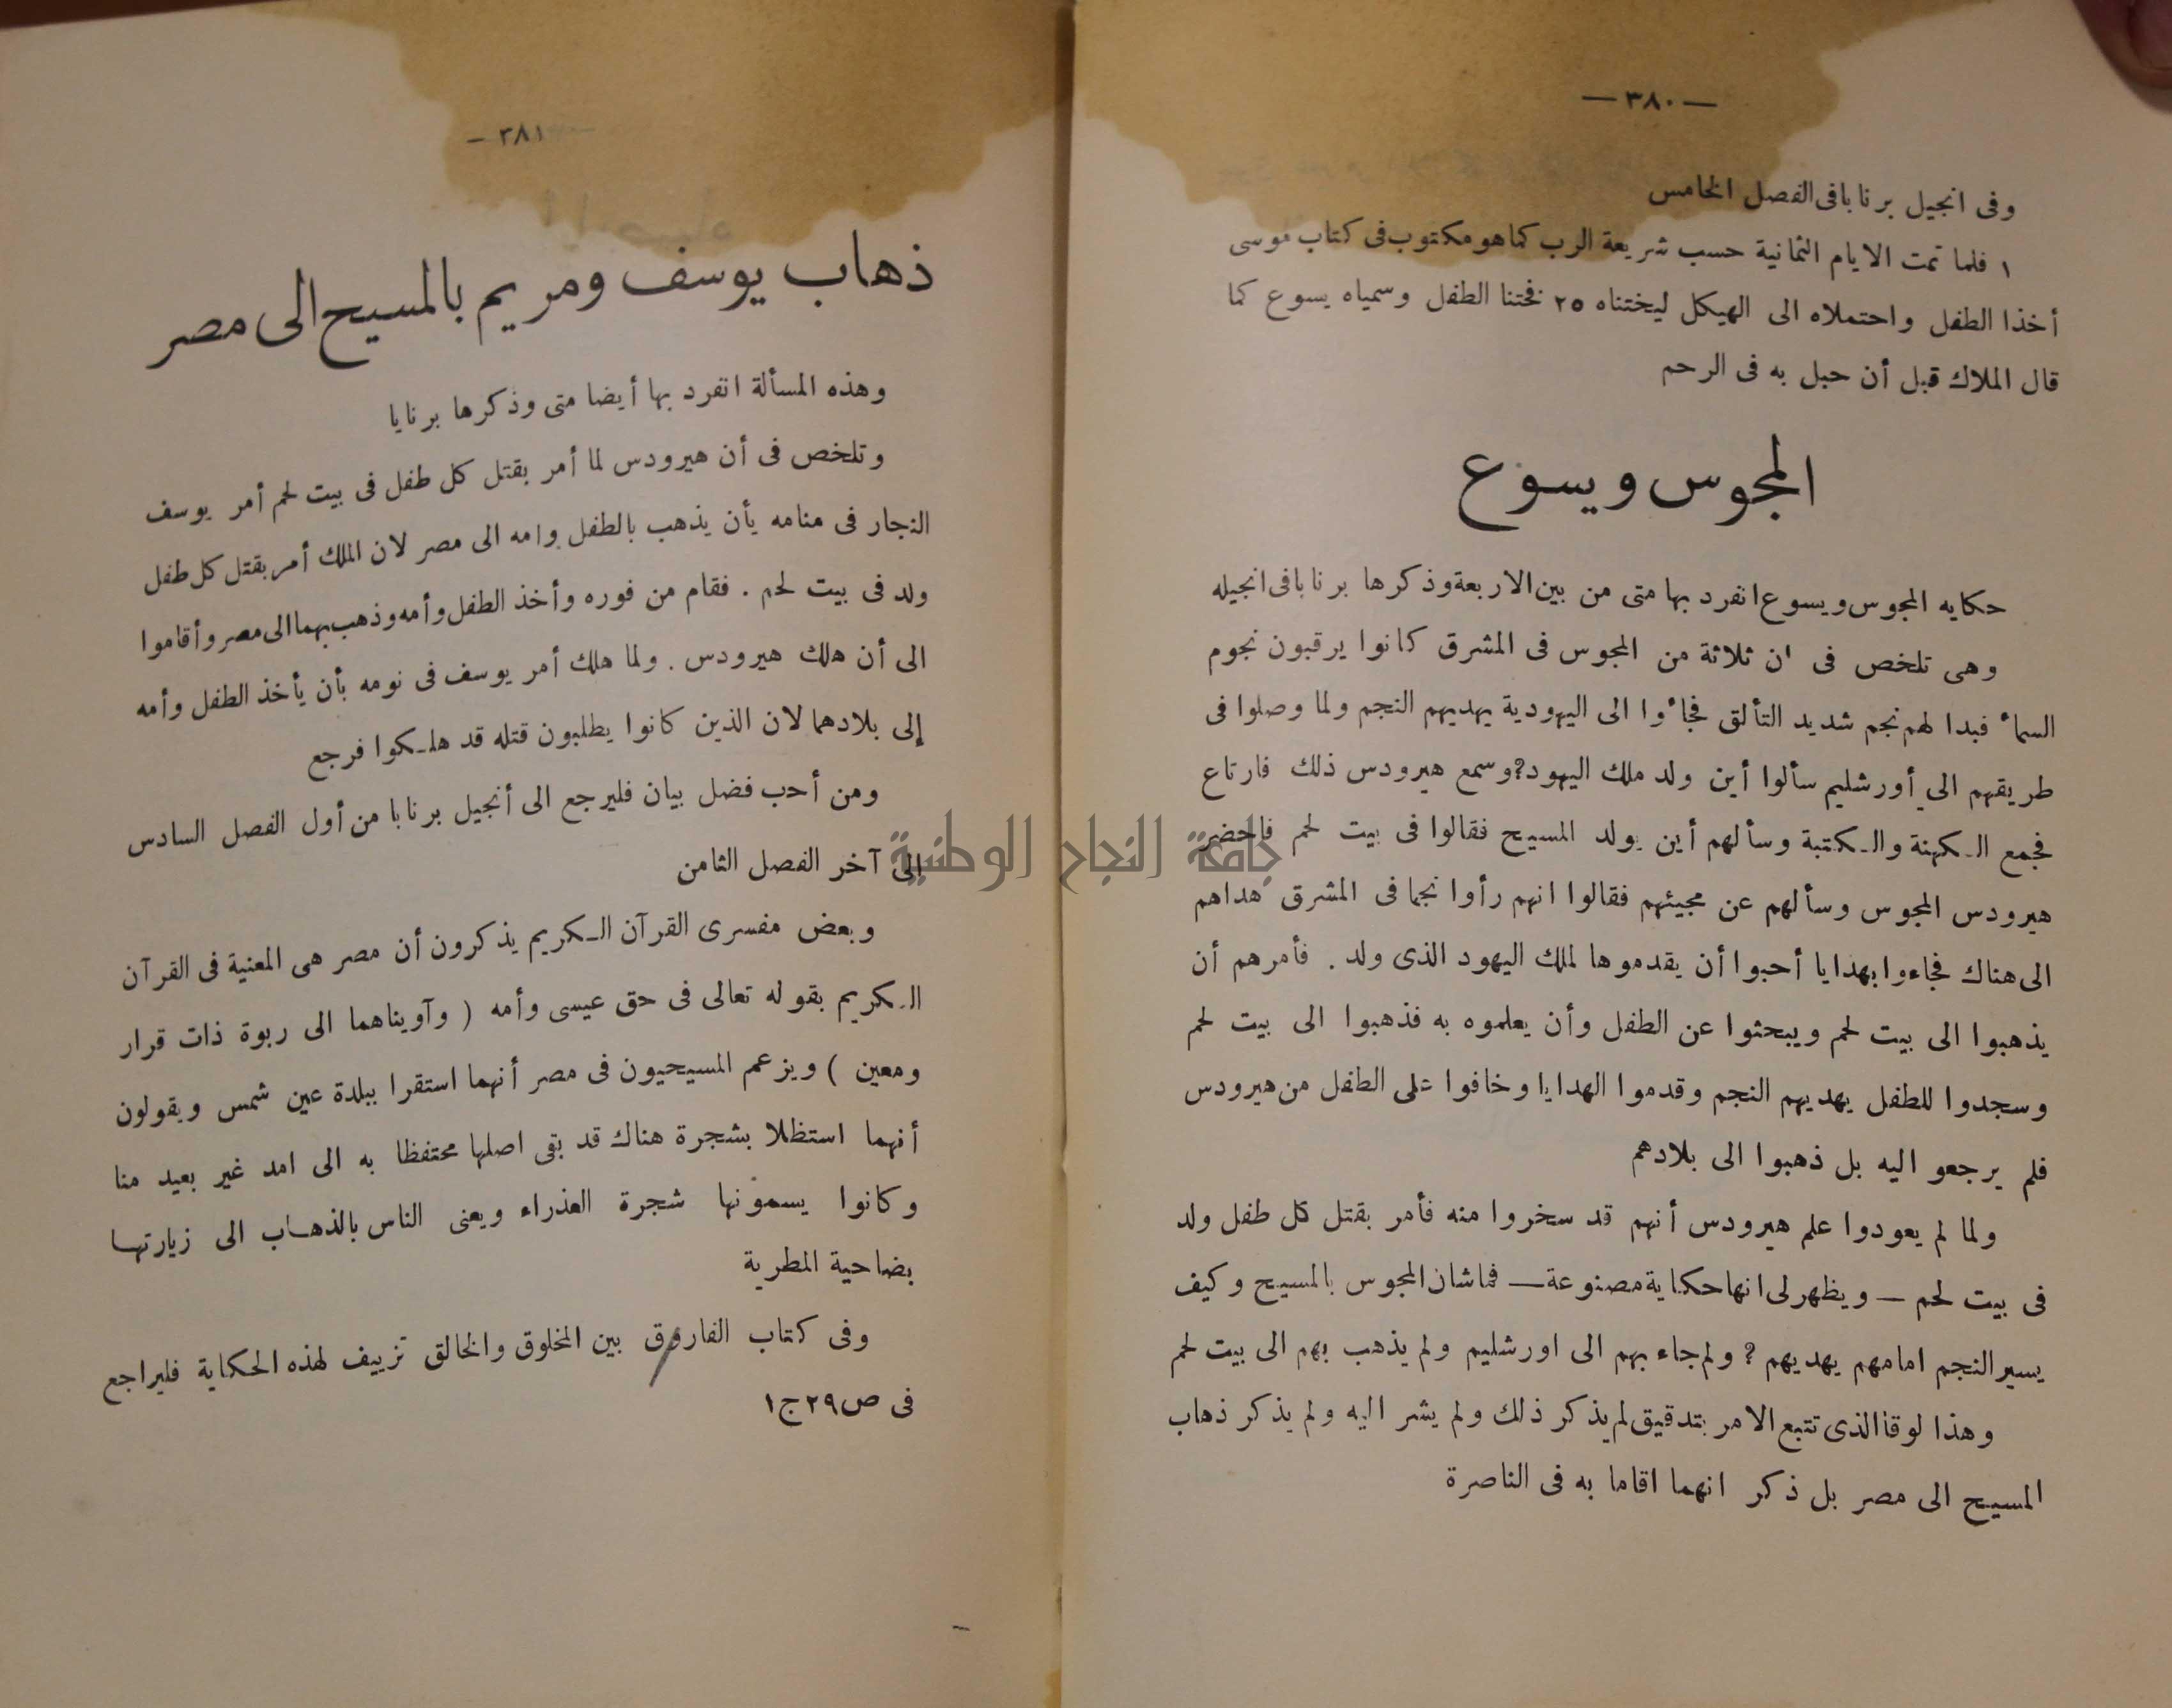 — ٣٨٠ —
وفى انجيل برنابا فى الفصل الخامس
١ فلما تمت الايام الثمانية حسب شريعة الرب كما هو مكتوب فى كتاب موسى
أخذا الطفل واحتملاه الى الهيكل ليختناه ٢٥ فختنا الطفل وسمياه يسوع كما
قال الملاك قبل أن حبل به فى الرحم
المجوس ويسوع
حكايه المجوس ويسوع انفرد بها متى من بين الاربعة وذكرها برنابا فى انجيله
وهى تلخص فى ان ثلاثة من المجوس فى المشرق كانوا يرقبون نجوم
السماء فبدا لهم نجم شديد التألق فجاءوا الى اليهودية يهديهم النجم ولما وصلوا فى
طريقهم الي أورشليم سألوا أين ولد ملك اليهود؟ وسمع هيرودس ذلك فارتاع
فجمع الكهنة والكتبة وسألهم أين يولد المسيح فقالوا فى بيت لحم فاحضر
هيرودس المجوس وسألهم عن مجيئهم فقالوا انهم رأوا نجما فى المشرق هداهم
الى هناك فجاءوا بهدايا أحبوا أن يقدموها لملك اليهود الذى ولد . فأمرهم أن
يذهبوا الى بيت لحم ويبحثوا عن الطفل وأن يعلموه به فذهبوا الى بيت لحم
وسجدوا للطفل يهديهم النجم وقدموا الهدايا وخافوا على الطفل من هيرودس
فلم يرجعو اليه بل ذهبوا الى بلادهم
ولما لم يعودوا علم هيرودس أنهم قد سخروا منه فأمر بقتل كل طفل ولد
فى بيت لحم — ويظهر لى انها حكاية مصنوعة — فما شان المجوس بالمسيح وكيف
يسير النجم امامهم يهديهم ؟ ولم جاء بهم الى اورشليم ولم يذهب بهم الى بيت لحم
وهذا لوقا الذى تتبع الامر بتدقيق لم يذكر ذلك ولم يشر اليه ولم يذكر ذهاب
المسيح الى مصر بل ذكر انهما اقاما به فى الناصرة
— ٣٨١ —
ذهاب يوسف ومريم بالمسيح الى مصر
وهذه المسألة انفرد بها أيضا متى وذكرها برنابا
وتلخص فى أن هيرودس لما أمر بقتل كل طفل فى بيت لحم أمر يوسف
النجار فى منامه يأن يذهب بالطفل وامه الى مصر لان الملك أمر بقتل كل طفل
ولد فى بيت لحم . فقام من فوره وأخذ الطفل وأمه وذهب بهما الى مصر وأقاموا
الى أن هلك هيرودس . ولما هلك أمر يوسف فى نومه بأن يأخذ الطفل وأمه
إلى بلادهما لان الذين كانوا يطلبون قتله قد هلكوا فرجع
ومن أحب فضل بيان فليرجع الى أنجيل برنابا من أول الفصل السادس
إلى آخر الفصل الثامن
وبعض مفسرى القرآن الكريم يذكرون أن مصر هى المعنية فى القرآن
الكريم بقوله تعالى فى حق عيسى وأمه ( وآويناهما الى ربوة ذات قرار
ومعين ) ويزعم المسيحيون فى مصر أنهما استقرا ببلدة عين شمس ويقولون
أنهما استظلا بشجرة هناك قد بقى اصلها محتفظا به الى امد غير بعيد منا
وكانوا يسمونها شجرة العذراء ويعنى الناس بالذهاب الى زيارتها
بضاحية المطرية
وفى كتاب الفاروق بين المخلوق والخالق تزييف لهذه الحكاية فليراجع
فى ص ٢٩ ج ١
جامعة النجاح الوطنية